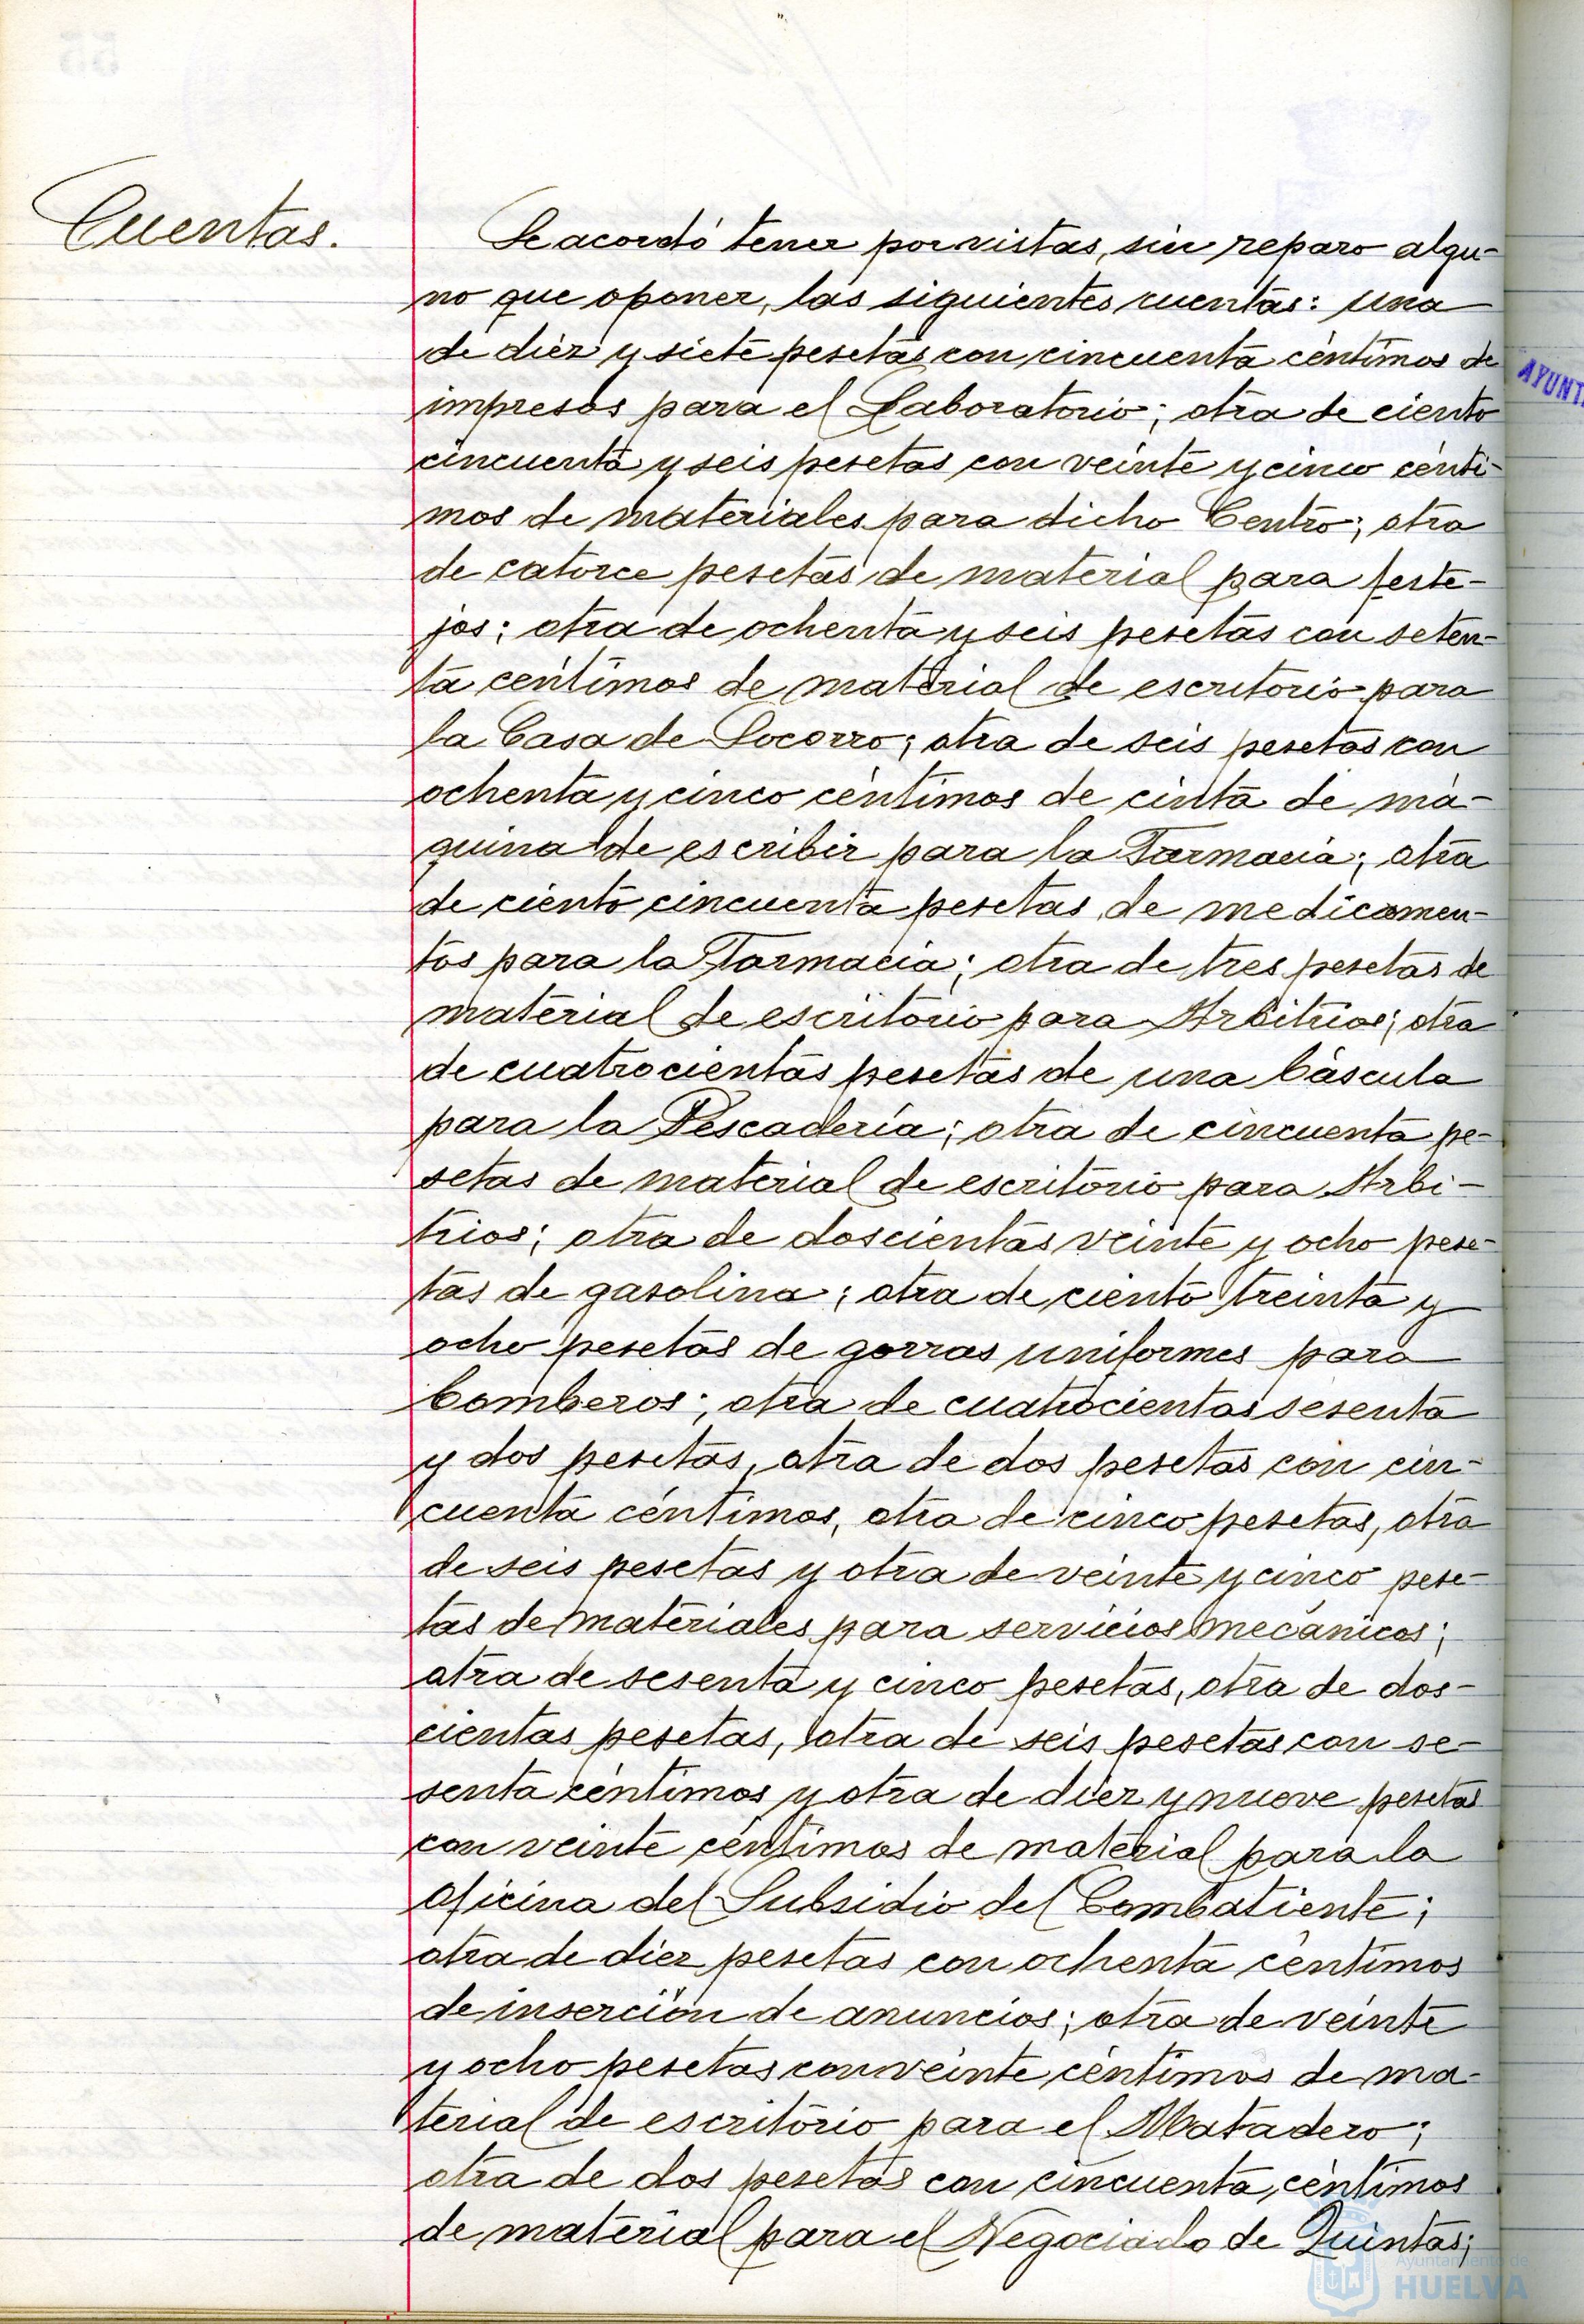 Cuentas.
Se acordó tener por vistas, sin reparo algu-
no que oponer, las siguientes cuentas: una
de diez y siete pesetas con cincuenta céntimos de
impresos para el Laboratorio; otra de ciento
cincuenta y seis pesetas con veinte y cinco cénti-
mos de materiales para dicho Centro; otra
de catorce pesetas de material para feste-
jos; otra de ochenta y seis pesetas con seten-
ta céntimos de material de escritorio para
la Casa de Socorro; otra de seis pesetas con
ochenta y cinco céntimos de cinta de má-
quina de escribir para la Farmacia; otra
de ciento cincuenta pesetas de medicamen-
tos para la Farmacia; otra de tres pesetas de
material de escritorio para Arbitrios; otra
de cuatrocientas pesetas de una báscula
para la Pescadería; otra de cincuenta pe-
setas de material de escritorio para Arbi-
trios; otra de doscientas veinte y ocho pese-
tas de gasolina; otra de ciento treinta y
ocho pesetas de gorras uniformes para
bomberos; otra de cuatrocientas sesenta
y dos pesetas, otra de dos pesetas con cin-
cuenta céntimos, otra de cinco pesetas, otra
de seis pesetas y otra de veinte y cinco pese-
tas de materiales para servicios mecánicos;
otra de sesenta y cinco pesetas, otra de dos-
cientas pesetas, otra de seis pesetas con se-
senta céntimos y otra de diez y nueve pesetas
con veinte céntimos de material para la
oficina del Subsidio del Combatiente;
otra de diez pesetas con ochenta céntimos
de inserción de anuncios; otra de veinte
y ocho pesetas con veinte céntimos de ma-
terial de escritorio para el Matadero;
otra de dos pesetas con cincuenta, céntimos
de material para el Negociado de Quintas;
AYUNT
Ayuntamiento de
HUELVA